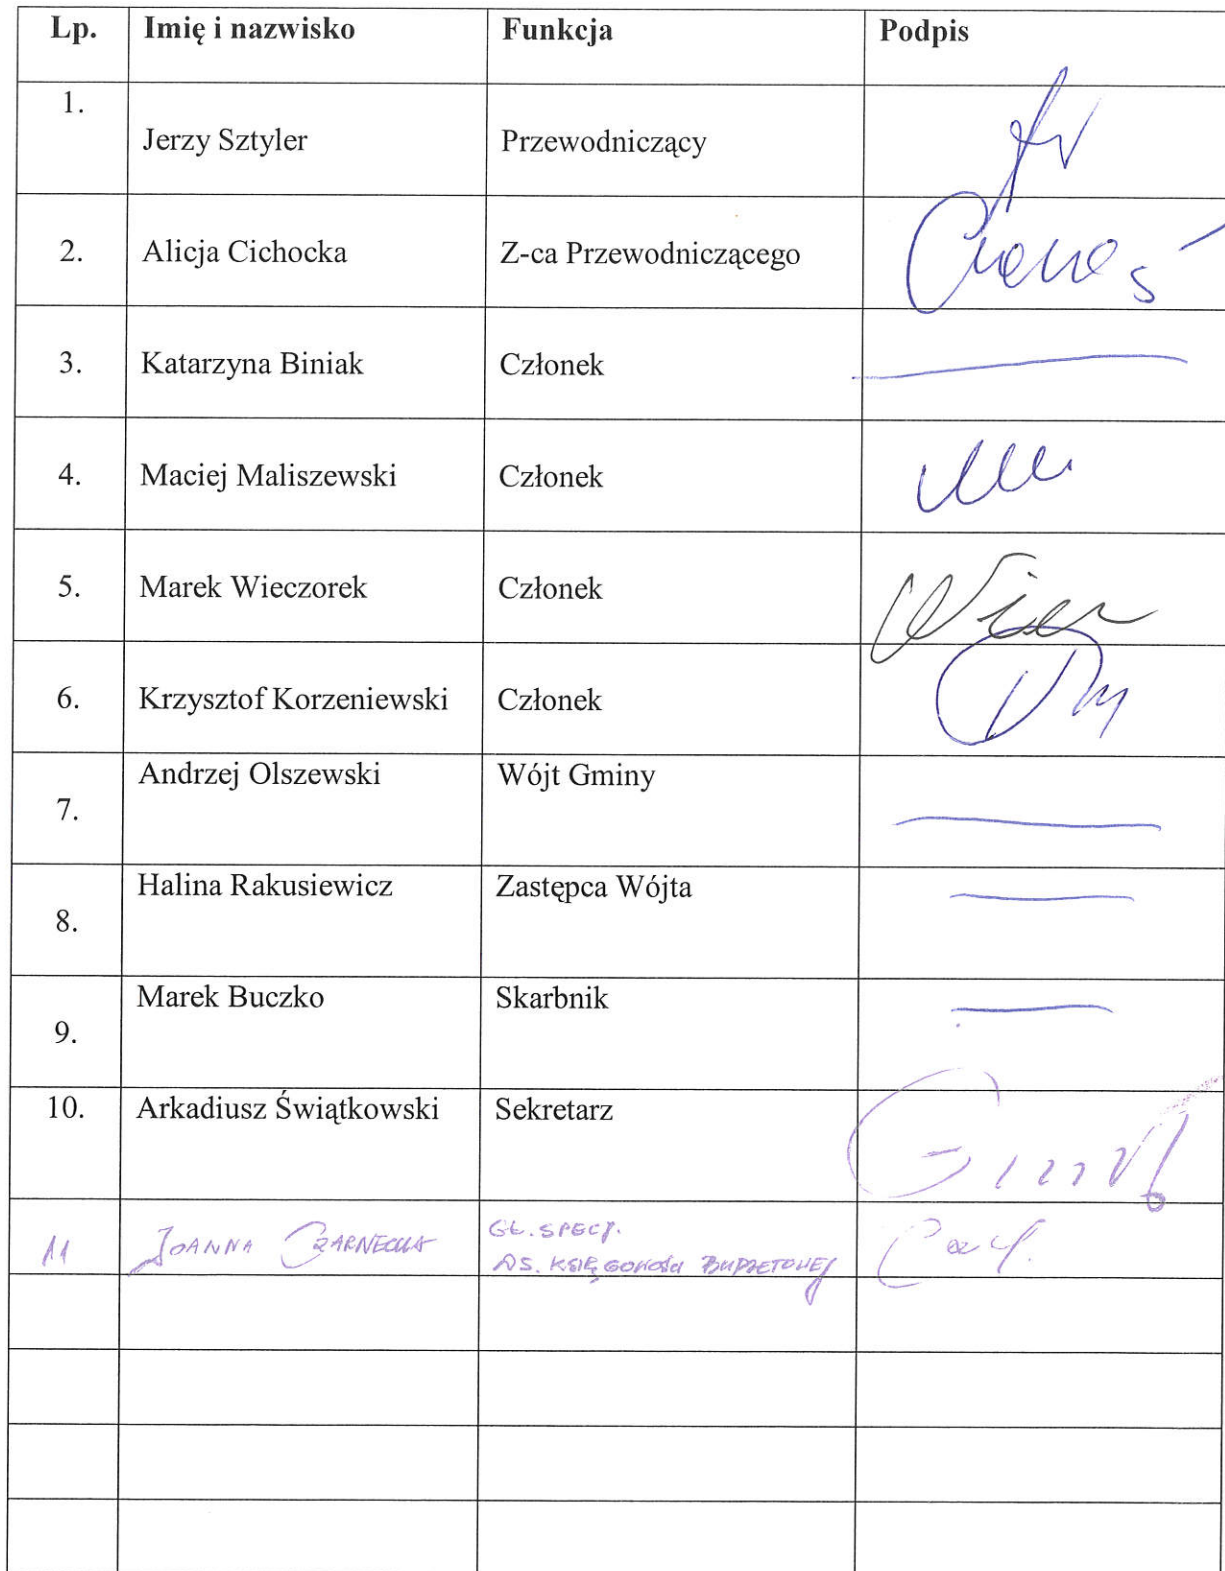 Lp. Imię i nazwisko Funkcja Podpis
1. Jerzy Sztyler Przewodniczący
2. Alicja Cichocka Z-ca Przewodniczącego
3. Katarzyna Biniak Członek
4. Maciej Maliszewski Członek
5. Marek Wieczorek Członek
6. Krzysztof Korzeniewski Członek
7. Andrzej Olszewski Wójt Gminy
8. Halina Rakusiewicz Zastępca Wójta
9. Marek Buczko Skarbnik
10. Arkadiusz Świątkowski Sekretarz
11 JOANNA CZARNECKA GŁ. SPECJ.
DS. KSIĘGOWOŚCI BUDŻETOWEJ